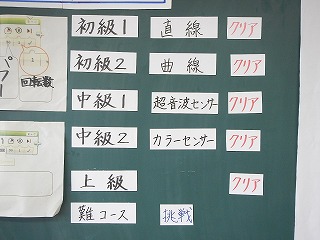 初級1 直線 クリア
初級2 曲線 クリア
回転数
中級1 超音波センサー クリア
中級2 カラーセンサー クリア
上級 クリア
難コース 挑戦